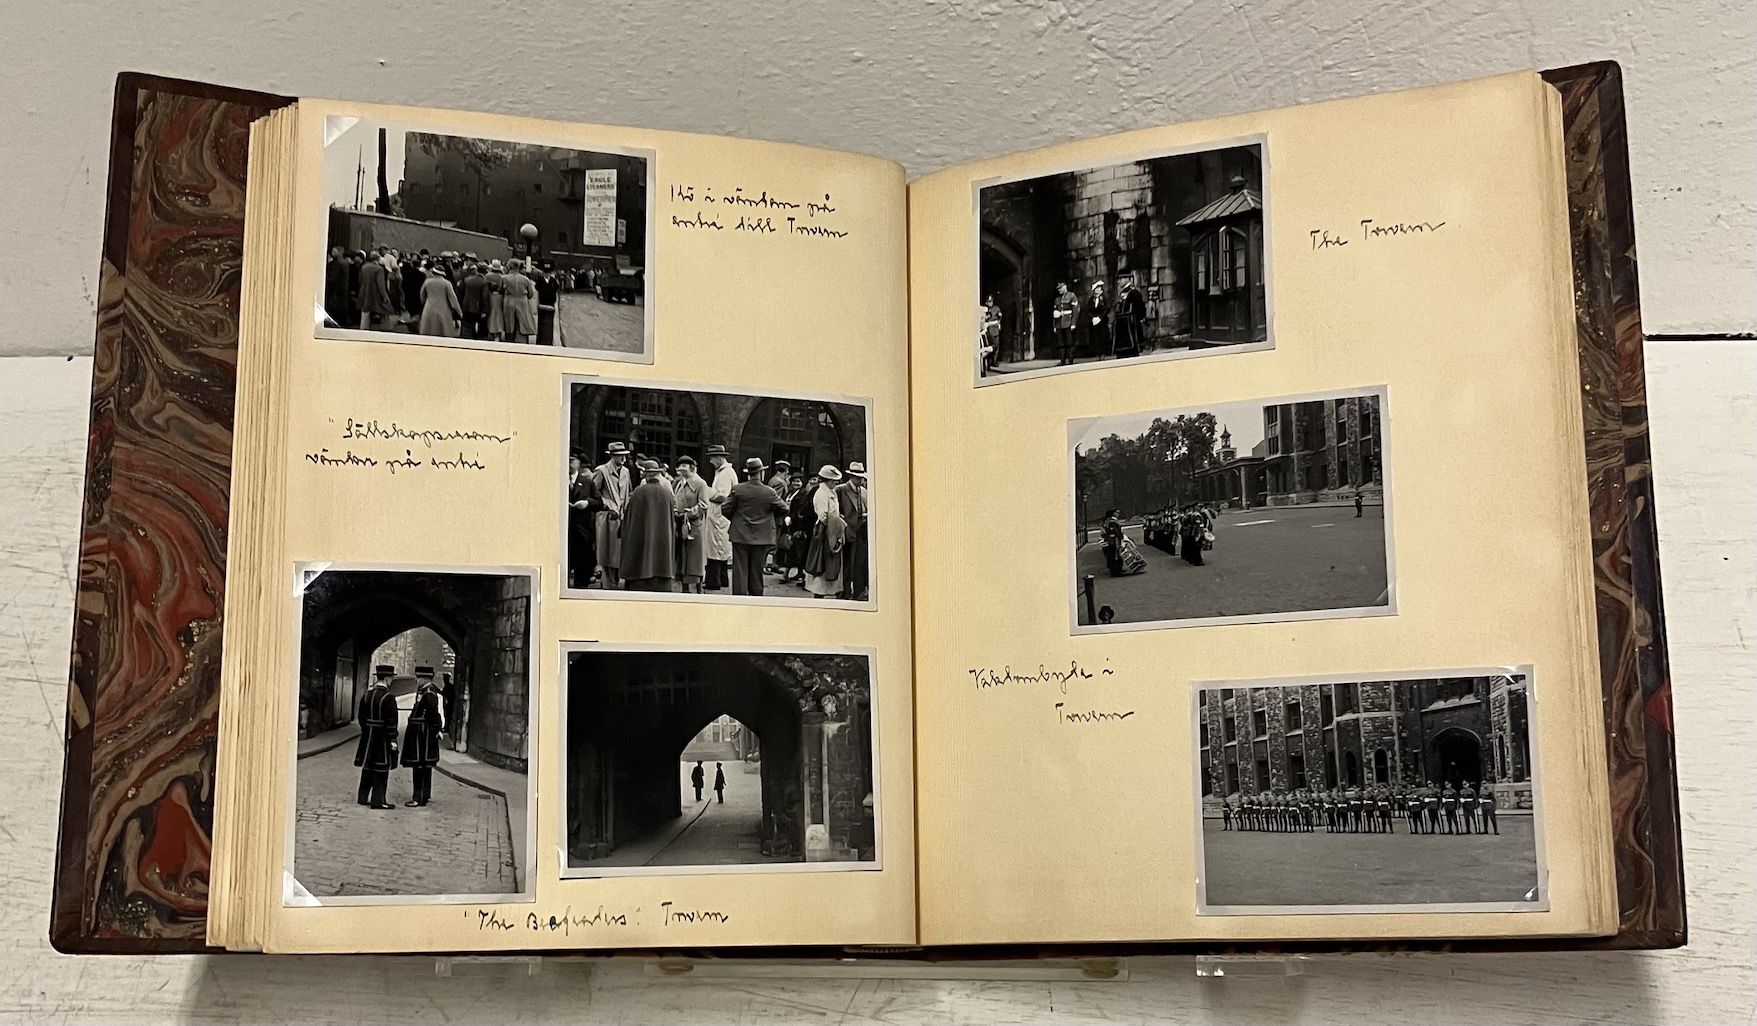 EAGLE
STEAMERS
Kö i väntan på
entré till Towern
"Sällskapsresan"
väntar på entré
"The Towern
The Towern
Vaktombyte i
Towern